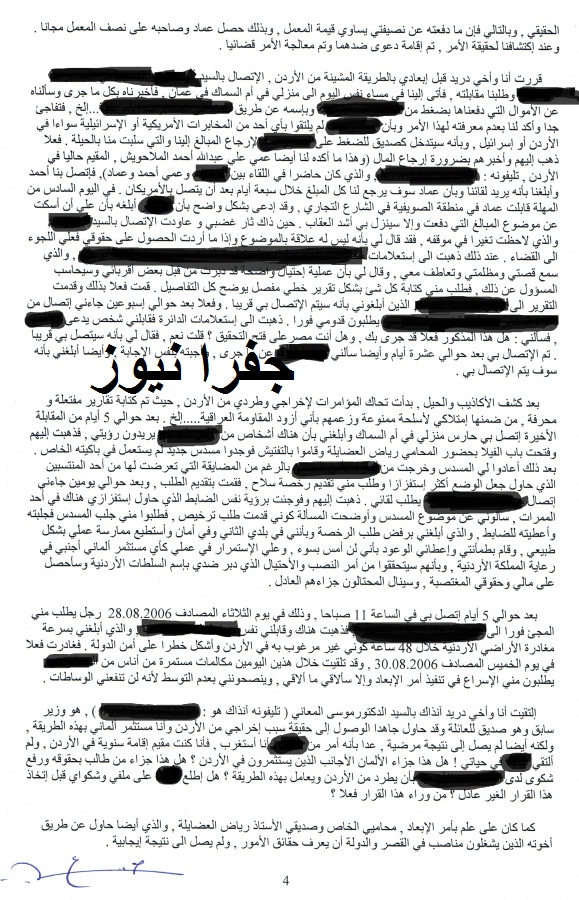 الحقيقي , وبالتالي فإن ما دفعته عن نصيفتي يساوي قيمة المعمل , وبذلك حصل عماد وصاحبه على نصف المعمل مجانا .
وعند إكتشافنا لحقيقة الأمر , تم إقامة دعوى ضدهما وتم معالجة الأمر قضائيا .
قررت أنا وأخي دريد قبل إبعادي بالطريقة المشينة من الأردن , الإتصال بالسيد
وطلبنا مقابلته , فأتى إلينا في مساء نفس اليوم الى منزلي في أم السماك في عمان . فأخبرناه بكل ما جرى وسألناه
عن الأموال التي دفعناها بضغط من وبإسمه عن طريق ...إلخ , فتفاجئ
جدا وأكد لنا بعدم معرفته لهذا الأمر وبأن لم يلتقوا بأي أحد من المخابرات الأمريكية أو الإسرائيلية سواءا في
الأردن أو إسرائيل , وبأنه سيتدخل كصديق للضغط على لإرجاع المبالغ إلينا والتي سلبت منا بالحيلة . فعلا
ذهب إليهم وأخبرهم بضرورة إرجاع المال (وهذا ما أكده لنا أيضا عمي علي عبدالله أحمد الملاحويش , المقيم حاليا في
الأردن , تليفونه : , والذي كان حاضرا في اللقاء بين وعمي أحمد وعماد), فإتصل بنا أحمد
وأبلغنا بأنه يريد لقائنا وبأن عماد سوف يرجع لنا كل المبلغ خلال سبعة أيام بعد أن يتصل بالأمريكان . في اليوم السادس من
المهلة قابلت عماد في منطقة الصويفية في الشارع التجاري , وقد إدعى بشكل واضح بأن أبلغه بأن علي أن أسكت
عن موضوع المبالغ التي دفعت وإلا سينزل بي أشد العقاب . حين ذاك ثار غضبي و عاودت الإتصال بالسيد
والذي لاحظت تغيرا في موقفه , فقد قال لي بأنه ليس له علاقة بالموضوع وإذا ما أردت الحصول على حقوقي فعلي اللجوء
الى القضاء . عند ذلك ذهبت الى إستعلامات , والذي
سمع قصتي ومظلمتي وتعاطف معي , وقال لي بأن عملية إحتيال واضحة قد دبرت من قبل بعض أقربائي وسيحاسب
المسؤول عن ذلك , فطلب مني كتابة كل شئ بشكل تقرير خطي مفصل يوضح كل التفاصيل . قمت فعلا بذلك وقدمت
التقرير الى الذين أبلغوني بأنه سيتم الإتصال بي قريبا . وفعلا بعد حوالي إسبوعين جاءني إتصال من
يطلبون قدومي فورا . ذهبت الى إستعلامات الدائرة فقابلني شخص يدعى
فسألني : هل هذا المذكور فعلا قد جرى بك , وهل أنت مصر على فتح التحقيق ؟ قلت نعم , فقال لي بأنه سيتصل بي قريبا
. تم الإتصال بي بعد حوالي عشرة أيام وأيضا سألني عن جرى , وأجبته نفس الإجابة , وأيضا أبلغني بأنه
سوف يتم الإتصال بي .
جفرا نيوز
بعد كشف الأكاذيب والحيل , بدأت تحاك المؤامرات لإخراجي وطردي من الأردن , حيث تم كتابة تقارير مفتعلة و
محرفة , من ضمنها إمتلاكي لأسلحة ممنوعة وزعمهم بأني أزود المقاومة العراقية.....إلخ . بعد حوالي 5 أيام من المقابلة
الأخيرة إتصل بي حارس منزلي في أم السماك وأبلغني بأن هناك أشخاص من يريدون رؤيتي , فذهبت إليهم
وفتحت باب الفيلا بحضور المحامي رياض العضايلة وقاموا بالتفتيش فوجدوا مسدس جديد لم يستعمل في باكيته الخاص .
بعد ذلك أعادوا لي المسدس وخرجت من بالرغم من المضايقة التي تعرضت لها من أحد المنتسبين
الذي حاول جعل الوضع أكثر إستفزازا وطلب مني تقديم رخصة سلاح . فقمت بتقديم الطلب , وبعد حوالي يومين جاءني
إتصال يطلب لقائي . ذهبت إليهم وفوجئت برؤية نفس الضابط الذي حاول إستفزازي هناك في أحد
الممرات , سألوني عن موضوع المسدس وأوضحت المسألة كوني قدمت طلب ترخيص , فطلبوا مني جلب المسدس فجلبته
وأعطيته للضابط , والذي أبلغني برفض طلب الرخصة وبأنني في بلدي الثاني وفي أمان وأستطيع ممارسة عملي بشكل
طبيعي , وقام بطمأنتي وإعطائي الوعود بأني لن أمس بسوء , وعلي الإستمرار في عملي كأي مستثمر ألماني أجنبي في
رعاية المملكة الأردنية , وبأنهم سيتحققوا من أمر النصب والأحتيال الذي دبر ضدي بإسم السلطات الأردنية وسأحصل
على مالي وحقوقي المغتصبة , وسينال المحتالون جزاءهم العادل .
بعد حوالي 5 أيام إتصل بي في الساعة 11 صباحا , وذلك في يوم الثلاثاء المصادف 28.08.2006 رجل يطلب مني
المجئ فورا الى فذهبت هناك وقابلني نفس , والذي أبلغني بسرعة
مغادرة الأراضي الأردنية خلال 48 ساعة كوني غير مرغوب به في الأردن وأشكل خطرا على أمن الدولة . فغادرت فعلا
في يوم الخميس المصادف 30.08.2006 , وقد تلقيت خلال هذين اليومين مكالمات مستمرة من أناس من
يطلبون مني الإسراع في تنفيذ أمر الإبعاد وإلا سألاقي ما ألاقي , وينصحونني بعدم التوسط لأنه لن تنفعني الوساطات .
التقيت أنا وأخي دريد آنذاك بالسيد الدكتورموسى المعاني ( تليفونه آنذاك هو : ) , هو وزير
سابق وهو صديق للعائلة وقد حاول جاهدا الوصول إلى حقيقة سبب إخراجي من الأردن وأنا مستثمر ألماني بهذه الطريقة ,
ولكنه أيضا لم يصل إلى نتيجة مرضية , عدا بأنه أمر من أنا أستغرب , فأنا كنت مقيم إقامة سنوية في الأردن , ولم
ألتقي في حياتي ! هل هذا جزاء الألمان الأجانب الذين يستثمرون في الأردن ؟ هل هذا جزاء من طالب بحقوقه ورفع
شكوى لدى بأن يطرد من الأردن ويعامل بهذه الطريقة ؟ هل إطلع على ملفي وشكواي قبل إتخاذ
هذا القرار الغير عادل ؟ من وراء هذا القرار فعلا ؟
كما كان على علم بأمر الإبعاد , محاميي الخاص وصديقي الأستاذ رياض العضايلة , والذي أيضا حاول عن طريق
أخوته الذين يشغلون مناصب في القصر والدولة أن يعرف حقائق الأمور , ولم يصل الى نتيجة إيجابية .
4